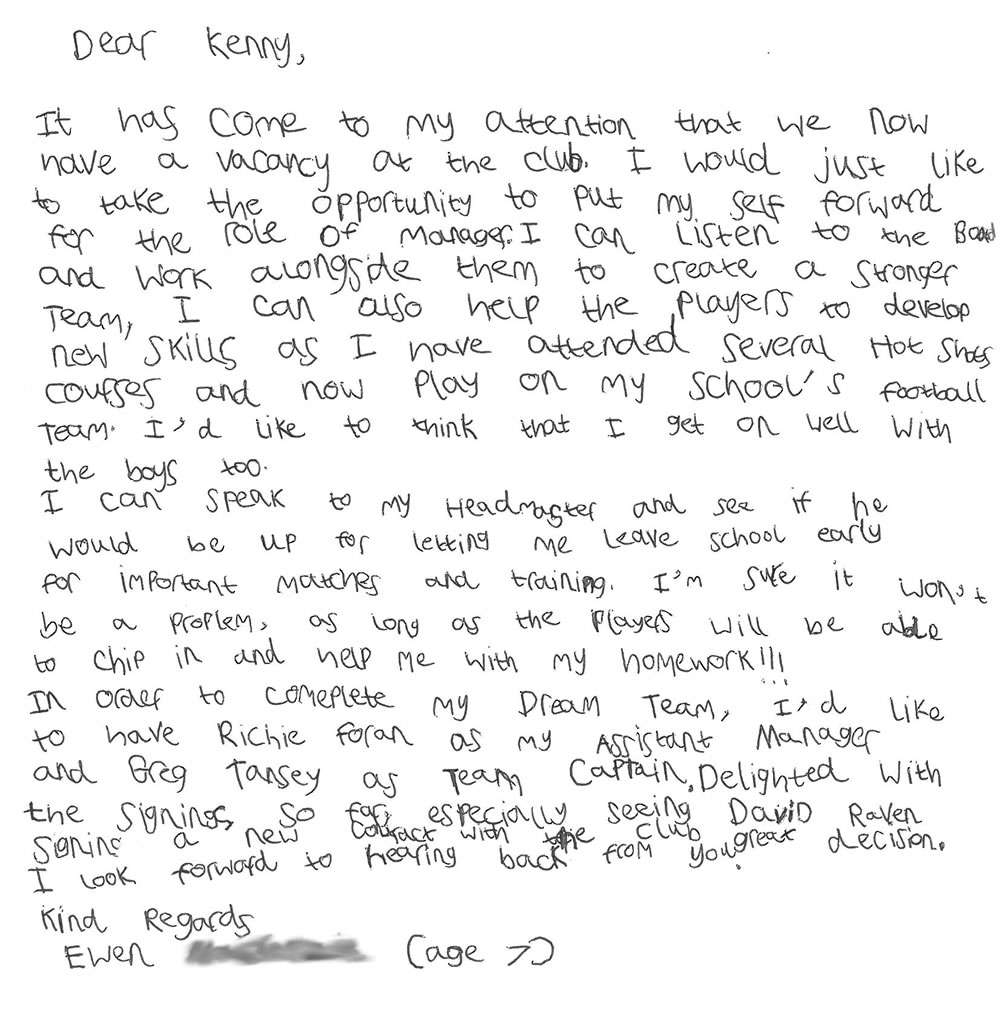 Dear Kenny,
It has come to my attention that we now
have a vacancy at the club. I would just like
to take the opportunity to put my self forward
for the role of Manager. I can Listen to the Boad
and work alongside them to create a stronger
Team, I can also help the players to develop
new skills as I have attended several Hot Shots
courses and now play on my school's football
Team. I'd like to think that I get on well with
the boys too.
I can speak to my Headmaster and see if he
would be up for letting me leave school early
for important matches and training. I'm sure it won't
be a proplem, as long as the players will be able
to chip in and help me with my homework!!!
In order to comeplete my Dream Team, I'd like
to have Richie foran as my Assistant Manager
and Greg Tansey as Team Captain. Delighted with
the signings so far, especially seeing David Raven
signing a new contract with the club great decision.
I look forward to hearing back from you.
Kind Regards
Ewen (age 7)